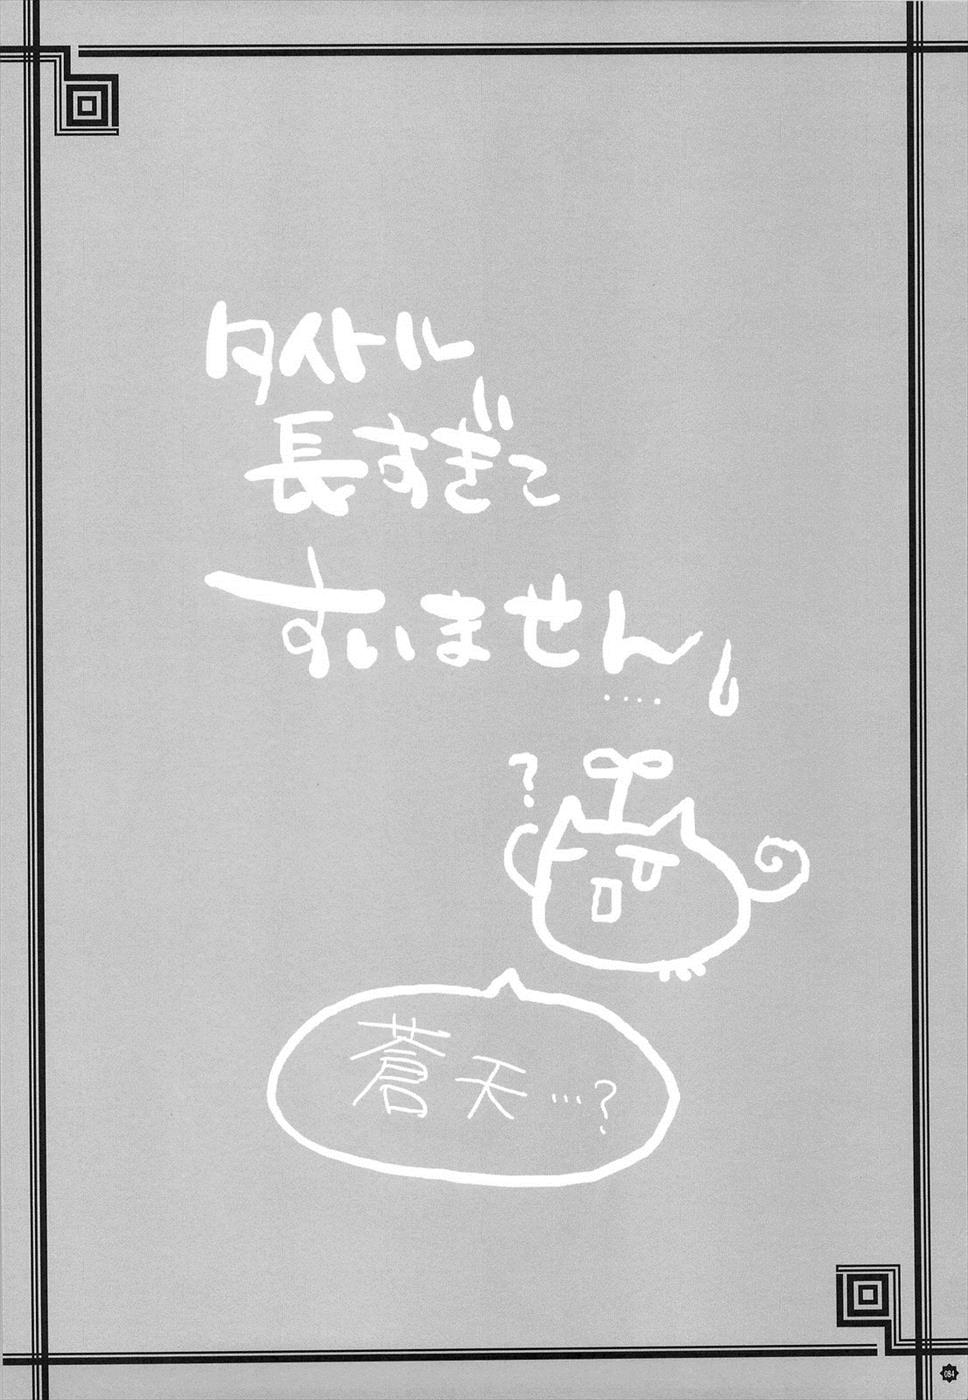 タイトル
長すぎて
すいません
‥‥
?
蒼天…?
084